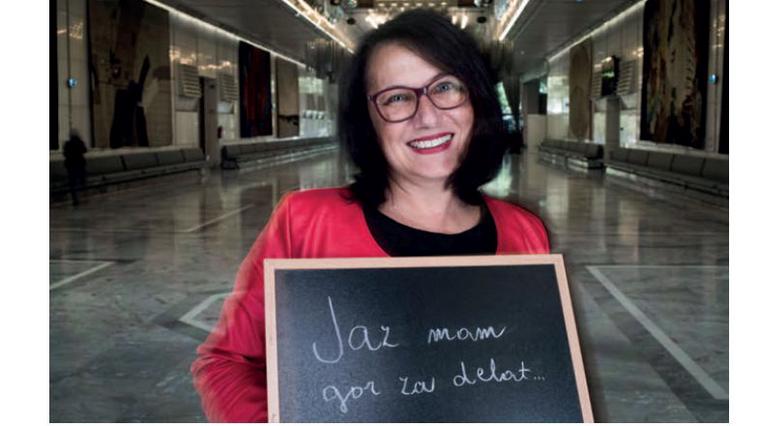 Jaz mam
gor za delat...